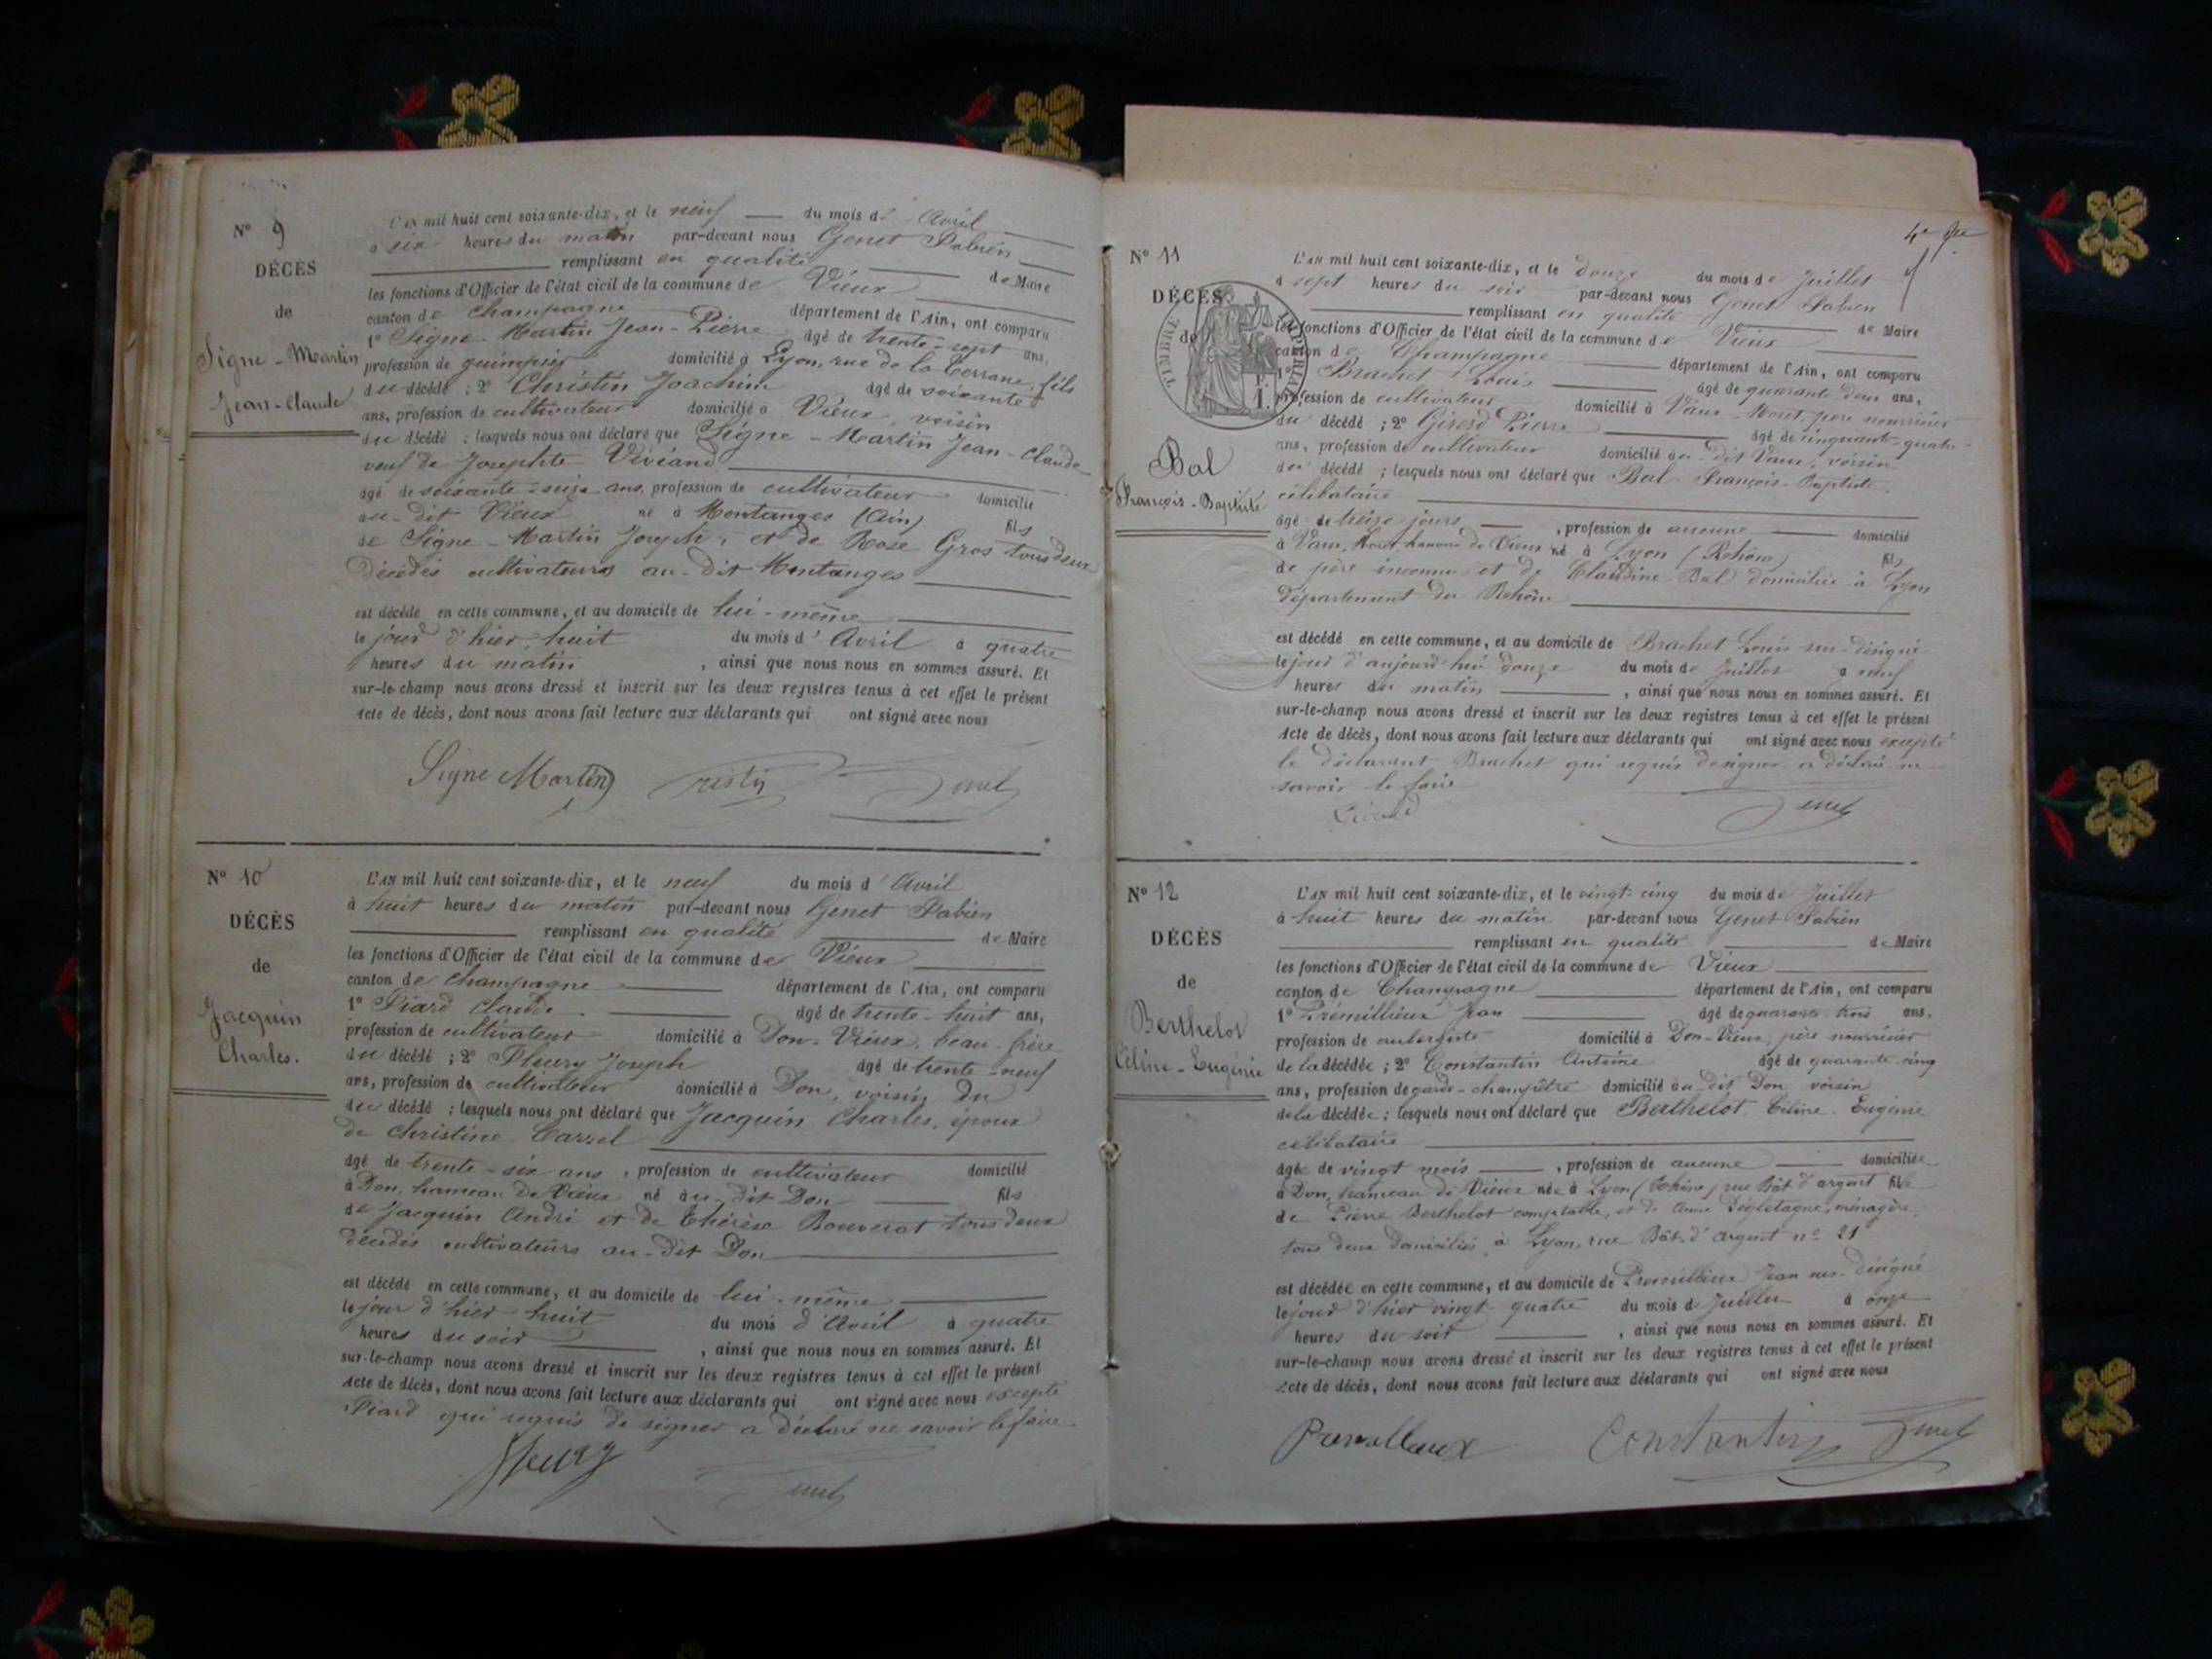 N° 9
DÉCÈS
de
Signe-Martin
Jean-Claude
L'AN mil huit cent soixante-dix, et le neuf du mois d' Avril
à six heures du matin par-devant nous Genet Fabien
remplissant en qualité de Maire
les fonctions d'Officier de l'état civil de la commune de Vieux
canton de Champagne département de l'Ain, ont comparu
1° Signe-Martin Jean-Pierre âgé de trente-sept ans,
profession de domicilié à Lyon, rue de la fils
du décédé ; 2° Christin Joachim âgé de soixante
ans, profession de cultivateur domicilié à Vieux, voisin
du décédé ; lesquels nous ont déclaré que Signe-Martin Jean-Claude
veuf de Josephte Viviand
âgé de soixante-seize ans, profession de cultivateur domicilié
au-dit Vieux né à Montanges (Ain) fils
de Signe-Martin Joseph, et de Rose Gros tous deux
décédés cultivateurs au-dit Montanges
est décédé en cette commune, et au domicile de lui-même
le jour d'hier, huit du mois d' Avril à quatre
heures du matin , ainsi que nous nous en sommes assuré. Et
sur-le-champ nous avons dressé et inscrit sur les deux registres tenus à cet effet le présent
Acte de décès, dont nous avons fait lecture aux déclarants qui ont signé avec nous
Signe Martin Genet
N° 10
DÉCÈS
de
Jacquin
Charles.
L'AN mil huit cent soixante-dix, et le neuf du mois d' Avril
à huit heures du matin par-devant nous Genet Fabien
remplissant en qualité de Maire
les fonctions d'Officier de l'état civil de la commune de Vieux
canton de Champagne département de l'Ain, ont comparu
1° Piard Claude âgé de trente-huit ans,
profession de cultivateur domicilié à Don-Vieux, beau-frère
du décédé ; 2° Fleury Joseph âgé de trente-neuf
ans, profession de cultivateur domicilié à Don, voisin du
du décédé ; lesquels nous ont déclaré que Jacquin Charles, époux
de Christine Carrel
âgé de trente-six ans , profession de cultivateur domicilié
à Don, hameau de Vieux né au-dit Don fils
de Jacquin André et de Thérèse Bouverat tous deux
décédés cultivateurs au-dit Don
est décédé en cette commune, et au domicile de lui-même
le jour d'hier huit du mois d'Avril à quatre
heures du soir , ainsi que nous nous en sommes assuré. Et
sur-le-champ nous avons dressé et inscrit sur les deux registres tenus à cet effet le présent
Acte de décès, dont nous avons fait lecture aux déclarants qui ont signé avec nous excepté
Piard qui requis de signer a déclaré ne savoir le faire
Fleury Genet
N° 11
DÉCÈS
de
TIMBRE IMPÉRIAL
F.
1.
Bal
François-Baptiste
L'AN mil huit cent soixante-dix, et le douze du mois de Juillet
à sept heures du soir par-devant nous Genet Fabien
remplissant en qualité de Maire
les fonctions d'Officier de l'état civil de la commune de Vieux
canton de Champagne département de l'Ain, ont comparu
1° Brachet Louis âgé de quarante deux ans,
profession de cultivateur domicilié à Vaux-Moret, père nourricier
du décédé ; 2° Girerd Pierre âgé de cinquante-quatre
ans, profession de cultivateur domicilié au-dit Vaux, voisin
du décédé ; lesquels nous ont déclaré que Bal François-Baptiste
célibataire
âgé de treize jours , profession de aucune domicilié
à Vaux, Moret, hameau de Vieux né à Lyon (Rhône) fils
de père inconnu et de Claudine Bal domiciliée à Lyon
département du Rhône
est décédé en cette commune, et au domicile de Brachet Louis sus-désigné
le jour d'aujourd'hui douze du mois de Juillet à neuf
heures du matin , ainsi que nous nous en sommes assuré. Et
sur-le-champ nous avons dressé et inscrit sur les deux registres tenus à cet effet le présent
Acte de décès, dont nous avons fait lecture aux déclarants qui ont signé avec nous excepté
le déclarant Brachet qui requis de signer a déclaré ne
savoir le faire
Genet
N° 12
DÉCÈS
de
Berthelot
Céline-Eugénie
L'AN mil huit cent soixante-dix, et le vingt-cinq du mois de Juillet
à huit heures du matin par-devant nous Genet Fabien
remplissant en qualité de Maire
les fonctions d'Officier de l'état civil de la commune de Vieux
canton de Champagne département de l'Ain, ont comparu
1° Prémillieux Jean âgé de quarante-trois ans,
profession de aubergiste domicilié à Don-Vieux, père nourricier
de la décédée ; 2° Constantin Antoine âgé de quarante-cinq
ans, profession de garde-champêtre domicilié au dit Don voisin
de la décédée ; lesquels nous ont déclaré que Berthelot Céline Eugénie
célibataire
âgée de vingt mois , profession de aucune domiciliée
à Don, hameau de Vieux née à Lyon (Rhône) rue Bât d'argent fille
de Pierre Berthelot comptable, et de Anne ménagère,
tous deux domiciliés à Lyon, rue Bât-d'argent n° 21
est décédée en cette commune, et au domicile de Prémillieux Jean sus-désigné
le jour d'hier vingt-quatre du mois de Juillet à onze
heures du soir , ainsi que nous nous en sommes assuré. Et
sur-le-champ nous avons dressé et inscrit sur les deux registres tenus à cet effet le présent
Acte de décès, dont nous avons fait lecture aux déclarants qui ont signé avec nous
Constantin Genet